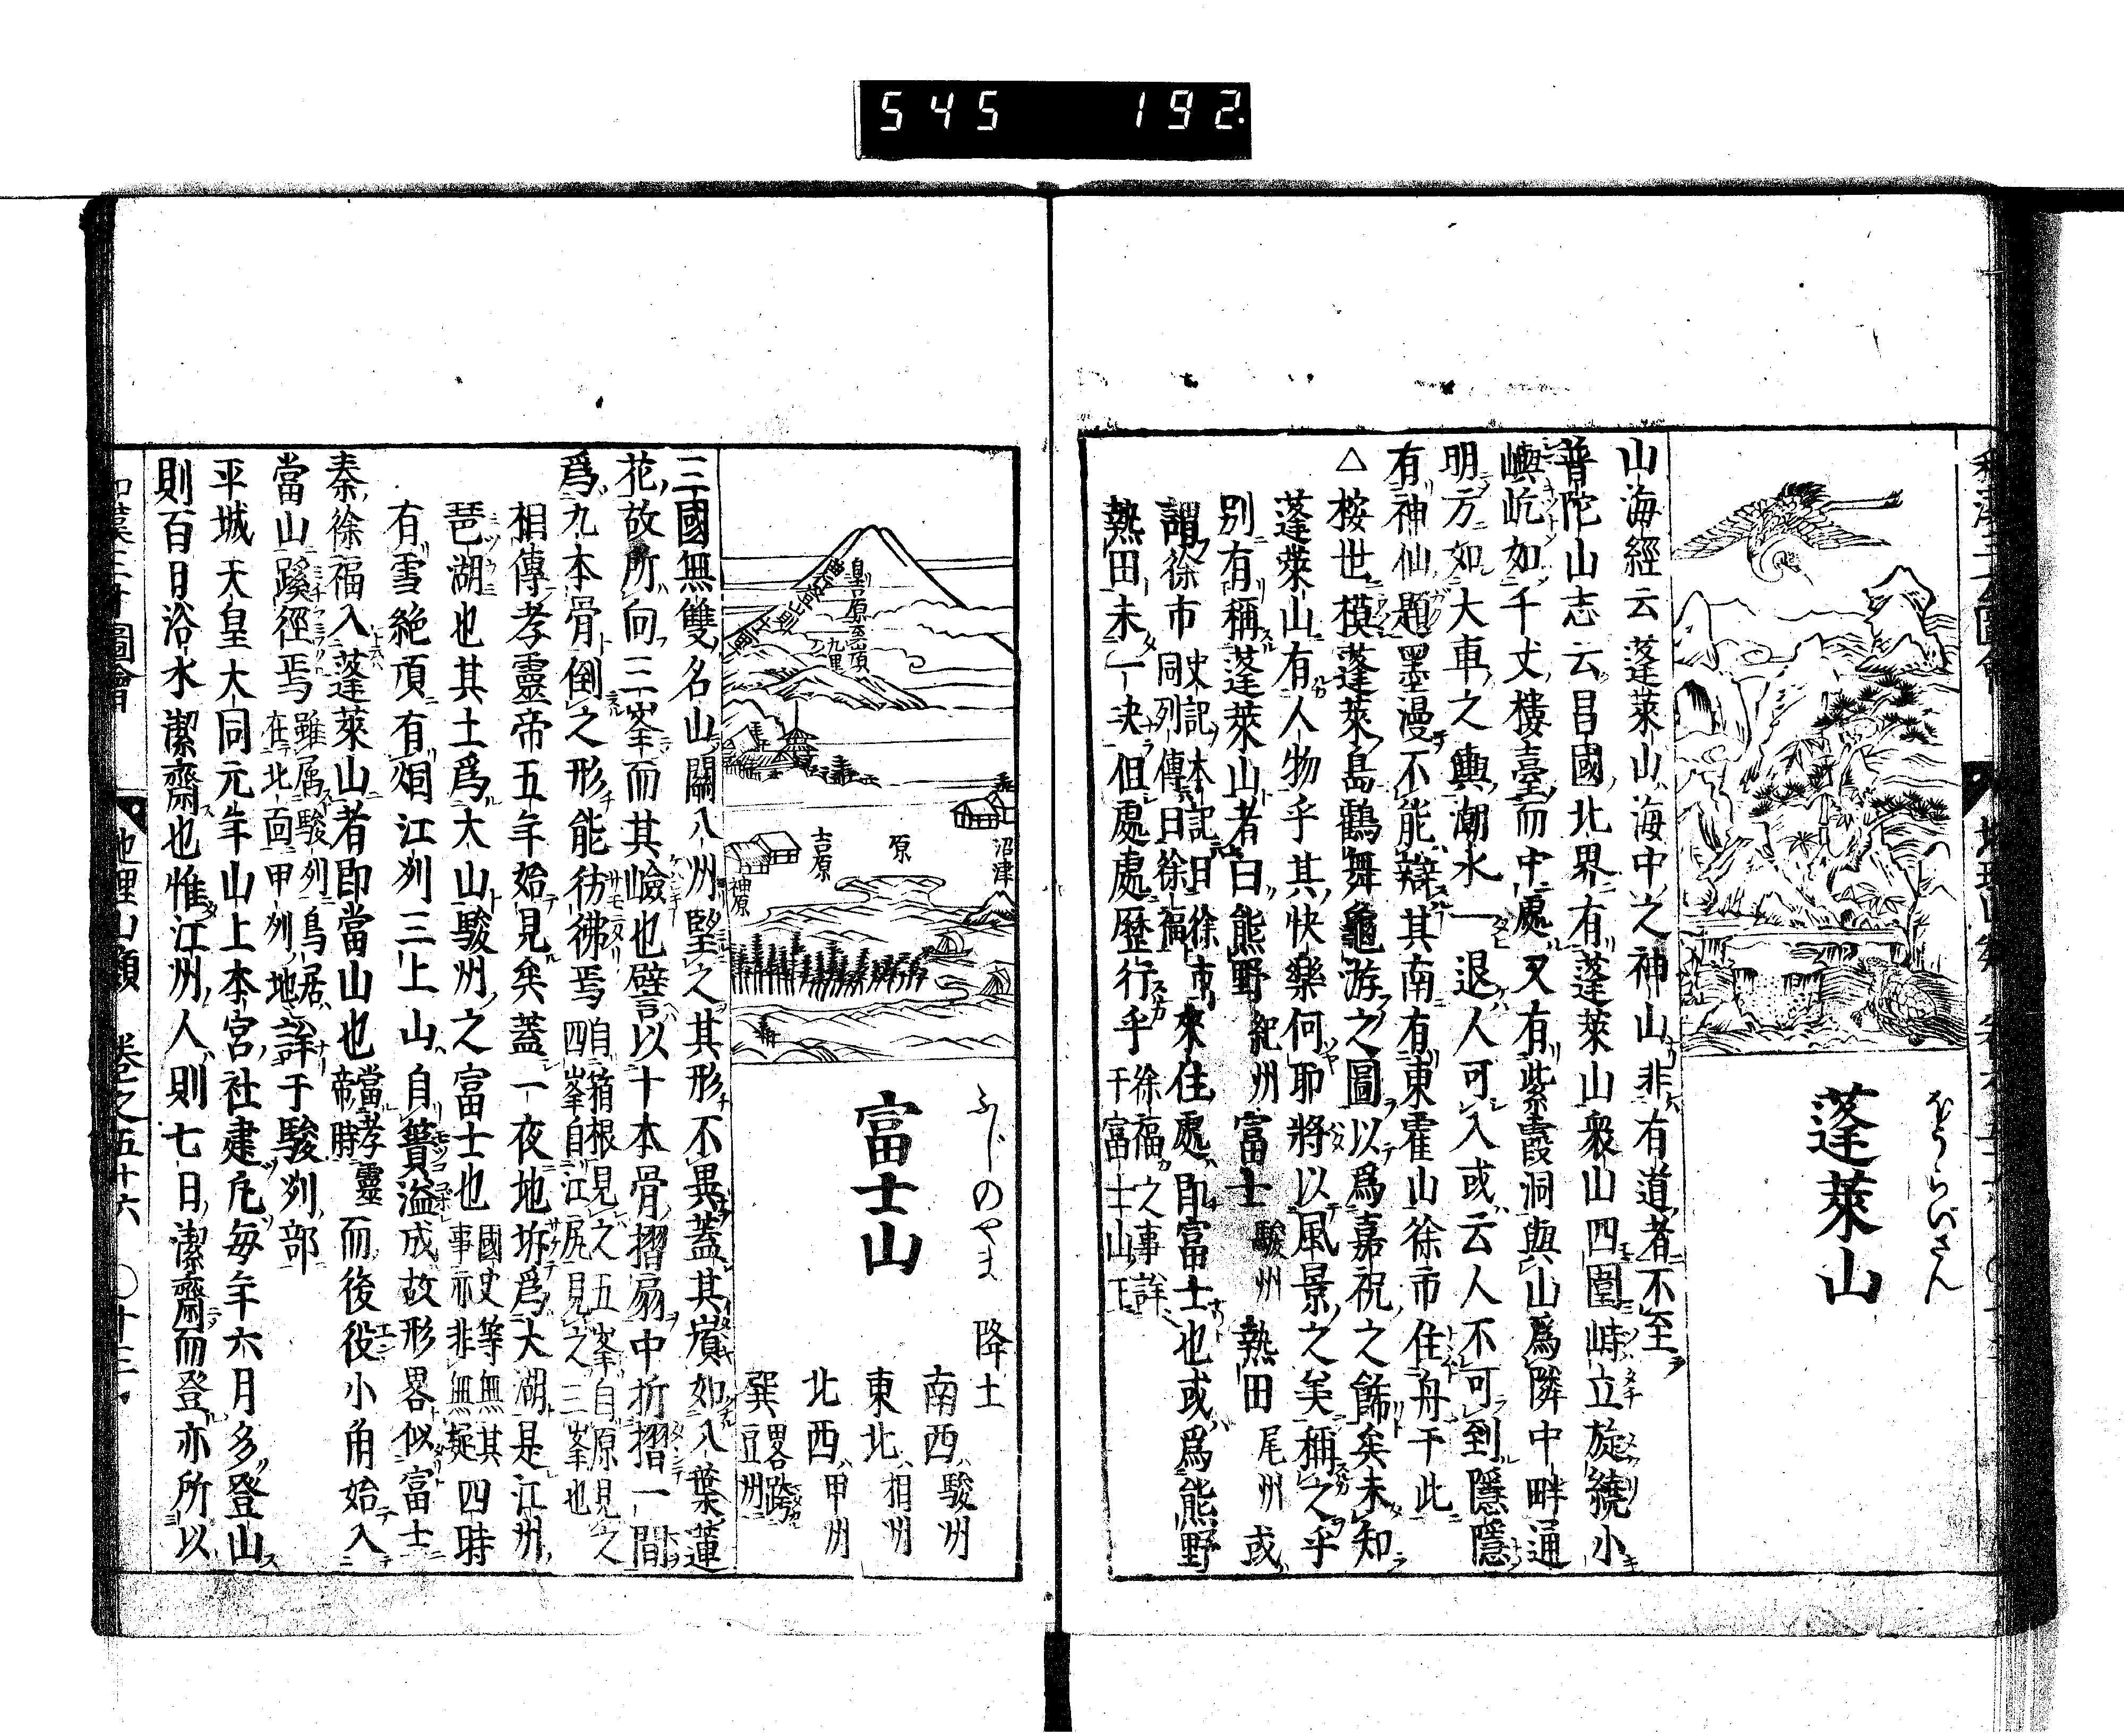 545 192
ほうらいさん
蓬萊山
山海經云蓬萊山海中之神山非有道者不至
普陀山志云昌國北界有蓬萊山衆山四圍峙立旋繞小
嶼屹如千丈樓臺而中處又有紫霞洞與山爲隣中畔通
明方如大車之輿潮水一退人可入或云人不可到隱隱
有神仙題墨漫不能辯其南有東霍山徐市住舟于此
△按世模蓬萊島鶴舞龜游之圖以爲嘉祝之餝矣未知
蓬萊山有人物乎其快樂何耶將以風景之美稱之乎
別有稱蓬萊山者曰熊野紀州富士駿州熱田尾州或
謂徐市史記本記曰徐市同列傳曰徐福來住處即富士也或爲熊野
熱田未一决但處處歷行乎徐福之事詳于富士山下
ふじのやま
富士山
降士
南西ハ駿州
東北ハ相州
北西ハ甲州
巽畧跨豆州
吉原至頂九里
沼津
原
吉原
神原
三國無雙名山關八州望之其形不異蓋其嶺如八葉蓮
花故所向三峯而其嶮也譬以十本骨摺扇中折摺一間
爲九本骨倒之形能彷彿焉自箱根見之五峯自原見之四峯自江尻見之三峯也
相傳孝靈帝五年始見矣蓋一夜地坼爲大湖是江州
琵湖也其土爲大山駿州之富士也國史等無其事亦非無疑四時
有雪絶頂有烟江刕三上山自簣溢成故形畧似富士
秦徐福入蓬萊山者即當山也當孝靈帝時而後役小角始入
當山蹊徑焉雖属駿刕鳥居在北面甲刕地詳于駿刕部
平城天皇大同元年山上本宮社建凡毎年六月多登山
則百日浴水潔齋也惟江州人則七日潔齋而登亦所以
和漢三才圖會 地理山類 卷之五十六 〇十三